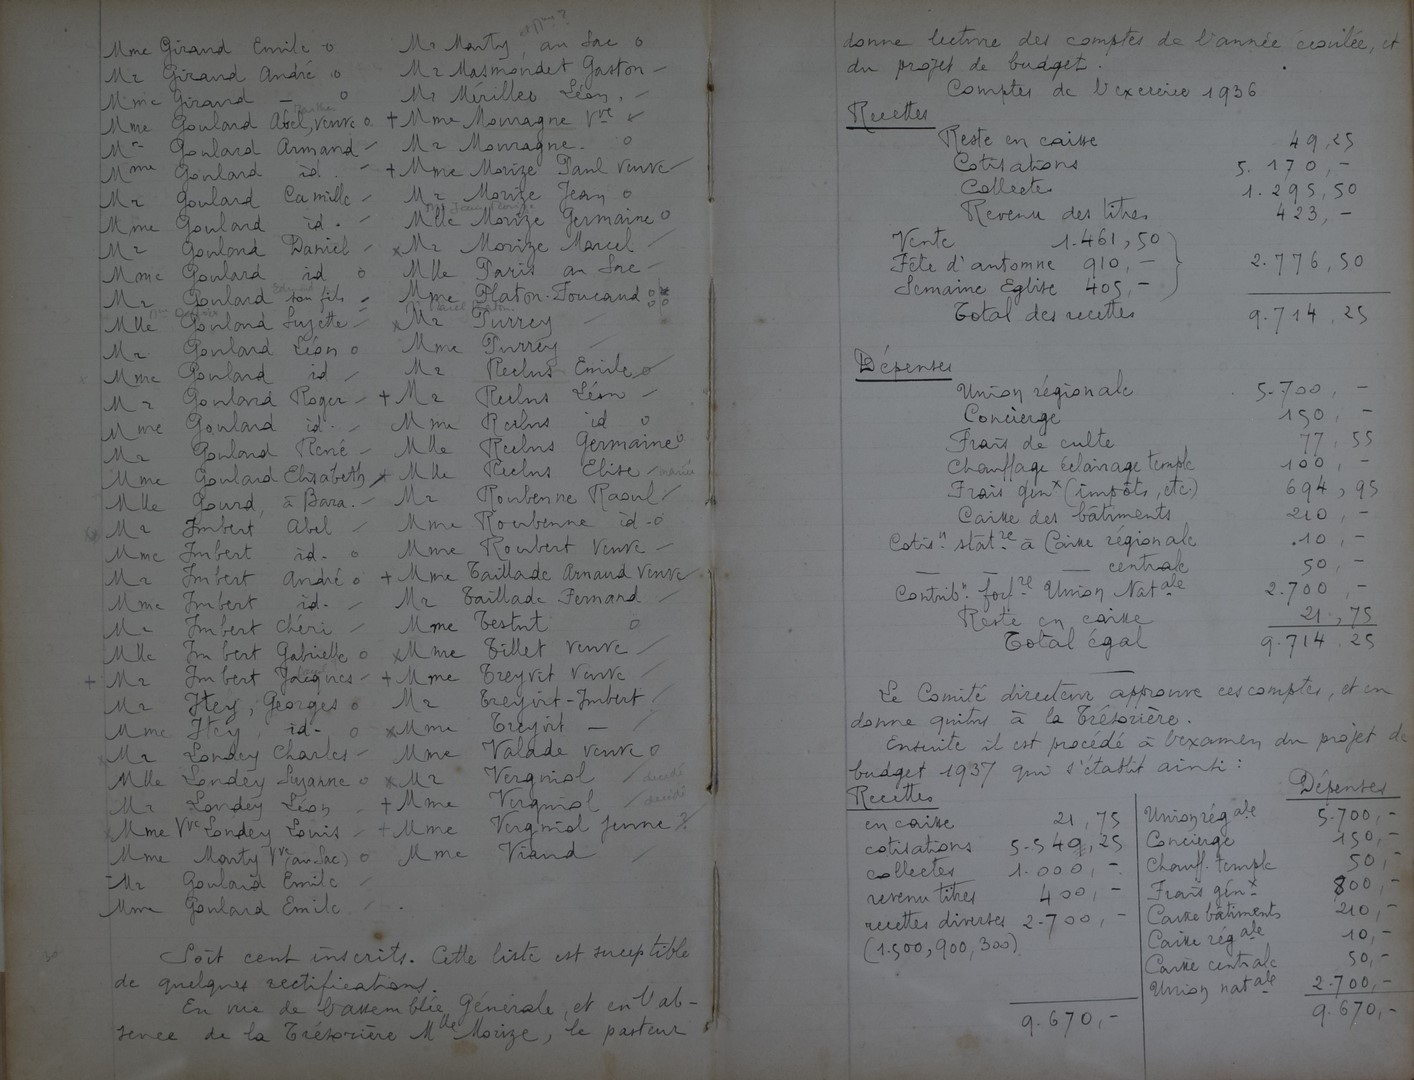 Mme Giraud Emile o
Mr Giraud André o
Mme Giraud — o
Mme Goulard Abel, veuve o
Mr Goulard Armand
Mme Goulard id.
Mr Goulard Camille
Mme Goulard id.
Mr Goulard Daniel
Mme Goulard id o
Mr Goulard son fils
Mlle Goulard Suzette
Mr Goulard Léon o
Mme Goulard id
Mr Goulard Roger
Mme Goulard id.
Mr Goulard René
Mme Goulard Elisabeth
Mlle Gourd, à Bara.
Mr Imbert Abel
Mme Imbert id. o
Mr Imbert André o
Mme Imbert id.
Mr Imbert Chéri
Mlle Imbert Gabrielle o
+ Mr Imbert Jacques
Mr Itey, Georges o
Mme Itey, id. o
Mr Londey Charles
Mlle Londey Suzanne o
Mr Londey Léon
Mme Vve Londey Louis
Mme Marty Vve (au Sac) o
Mr Goulard Emile
Mme Goulard Emile
Mr Marty, au Sac o
Mr Masmondet Gaston
Mr Mérilles Léon,
+ Mme Mouragne Vve
Mr Mouragne. o
+ Mme Morize Paul veuve
Mr Morize Jean o
Mlle Morize Germaine o
x Mr Morize Marcel
Mlle Paris au Sac
Mme Platon-Foucaud
x Mr Purrey
Mme Purrey
Mr Reclus Emile o
+ Mr Reclus Léon
Mme Reclus id o
Mlle Reclus Germaine o
Mlle Reclus Elise mariée
Mr Roubenne Raoul
Mme Roubenne id - o
Mme Roubert veuve
+ Mme Taillade Arnaud veuve
Mr Taillade Fernand
Mme Testut o
x Mme Tillet veuve
+ Mme Treyvit veuve
Mr Treyvit-Imbert
x Mme Treyvit —
Mme Valade veuve o
x Mr Vergniol décédé
+ Mme Vergniol décédé
+ Mme Vergniol jeune ?
Mme Viaud
Soit cent inscrits. Cette liste est suceptible
de quelques rectifications.
En vue de l'assemblée Générale, et en l'ab-
sence de la Trésorière Mlle Morize, le pasteur
donne lecture des comptes de l'année écoulée, et
du projet de budget.
Comptes de l'exercice 1936
Recettes
Reste en caisse 49,25
Cotisations 5.170,-
Collectes 1.295,50
Revenu des titres 423,-
Vente 1.461,50
Fête d'automne 910,- 2.776,50
Semaine Eglise 405,-
Total des recettes 9.714,25
Dépenses
Union régionale 5.700,-
Concierge 150,-
Frais de culte 77,55
Chauffage éclairage temple 100,-
Frais génx (impôts, etc) 694,95
Caisse des bâtiments 210,-
Cotisn statre à Caisse régionale 10,-
— — — centrale 50,-
Contribn forfre Union Natale 2.700,-
Reste en caisse 21,75
Total égal 9.714,25
Le Comité directeur approuve ces comptes, et en
donne quitus à la Trésorière.
Ensuite il est procédé à l'examen du projet de
budget 1937 qui s'établit ainsi :
Recettes
en caisse 21,75
cotisations 5.549,25
collectes 1.000,-
revenu titres 400,-
recettes diverses 2.700,-
(1.500, 900, 300)
9.670,-
Dépenses
Union régale 5.700,-
Concierge 150,-
Chauff. temple 50,-
Frais génx 800,-
Caisse bâtiments 210,-
Caisse régale 10,-
Caisse centrale 50,-
Union natale 2.700,-
9.670,-